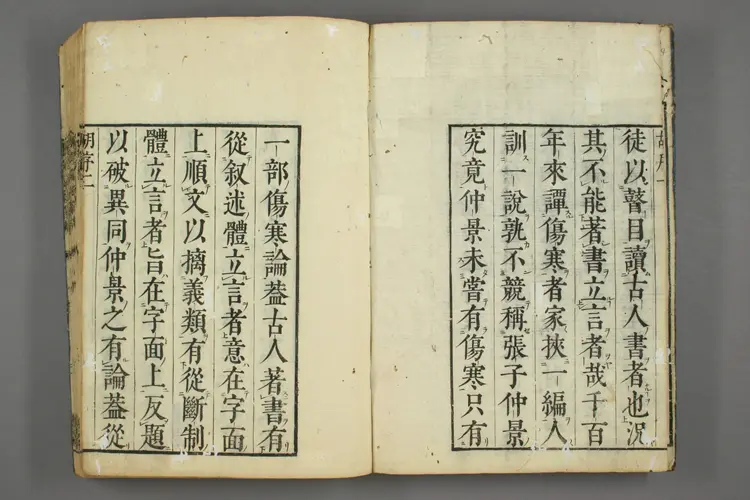 徒以瞽目讀古人書者也況
其不能著書立言者哉千百
年來譚傷寒者家挾一編人
訓一說孰不競稱張子仲景
究竟仲景未嘗有傷寒只有
一部傷寒論葢古人著書有
從叙述體立言者意在字面
上順文以摛義類有從斷制
體立言者旨在字面上反題
以破異同仲景之有論葢從
胡序二